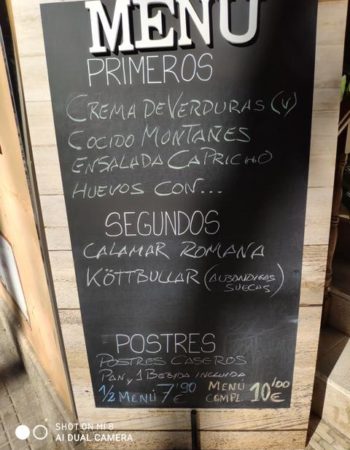 MENÚ
PRIMEROS
CREMA DE VERDURAS (V)
COCIDO MONTAÑES
ENSALADA CAPRICHO
HUEVOS CON...
SEGUNDOS
CALAMAR ROMANA
KÖTTBULLAR (ALBONDIGAS
SUECAS)
POSTRES
POSTRES CASEROS
PAN Y 1 BEBIDA INCLUIDA
1/2 MENÚ 7'90 € MENÚ COMPL. 10'00 €
SHOT ON MI 8
AI DUAL CAMERA